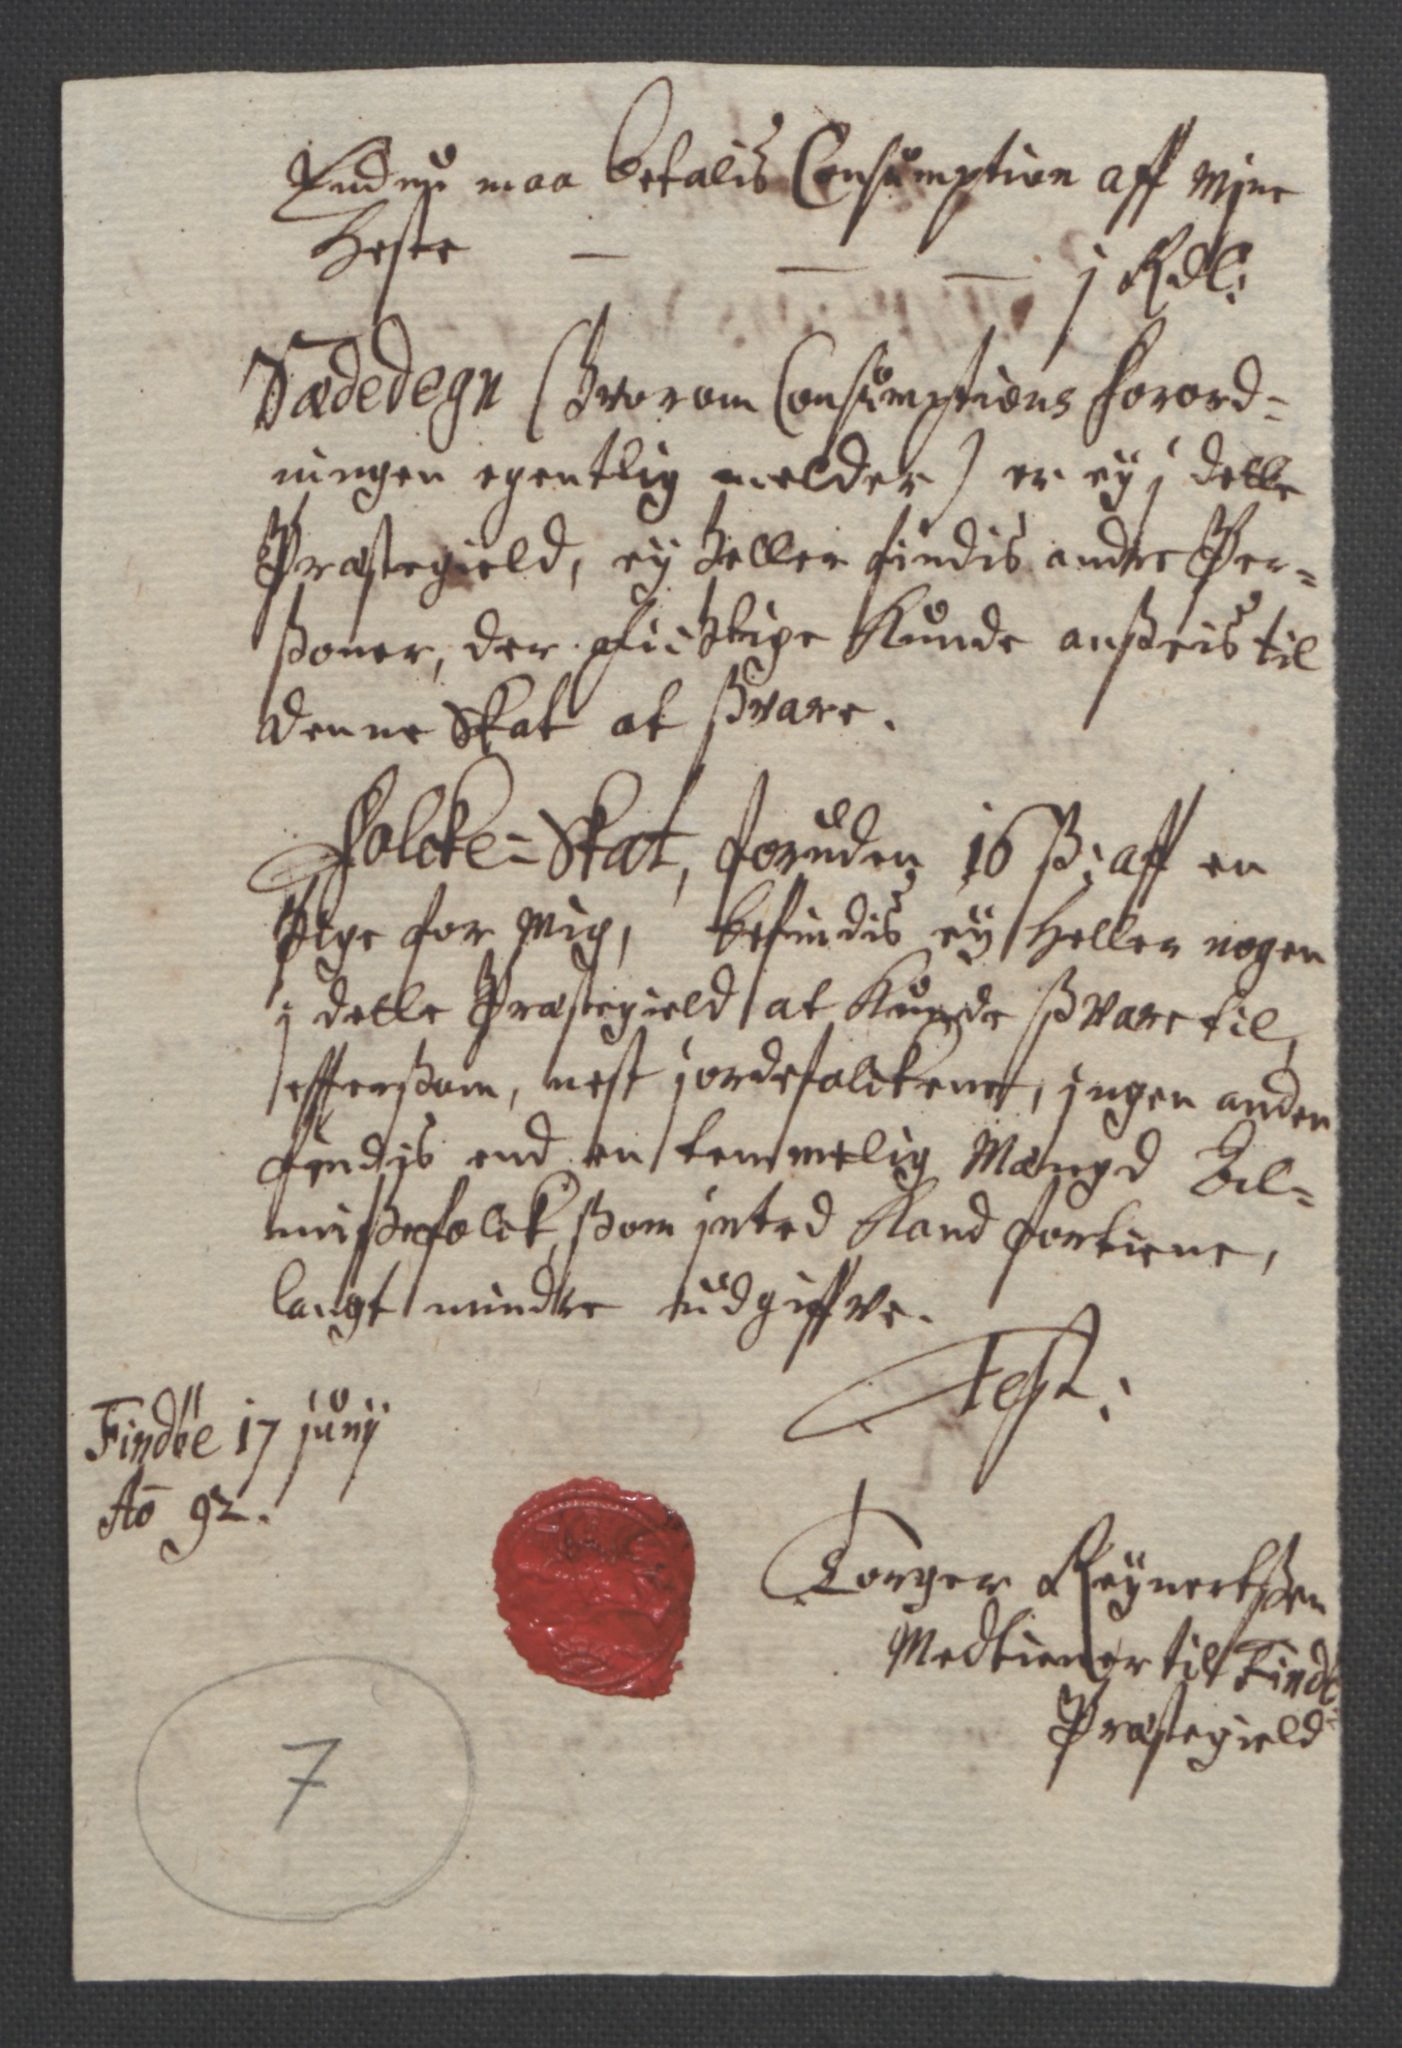 Endnu maa betalis Consumption aff Mine
Heste — — — j Rdl:
Sædedegn (hvorom Consumptions forord-
ningen egentlig melder) er ey j dette
Præstegield, ey heller findis andre Per-
ßoner, der pligtige kunde anßeis til
denne Skat at ßvare.
Folcke-Skat, foruden 16 ß: aff en
Pige for Mig, befindis ey heller nogen
j dette Præstegield at kunde ßvare til,
efftersom, nest jordefolckene, jngen anden
findis end en temmelig Mængd Al-
mißefolck, ßom jnted kand fortiene,
langt mindre udgiffve.
Test:
Findöe 17 junij
Aō 92.
Torger Reÿnertßen
Medtiener til Findö
Præstegield
7